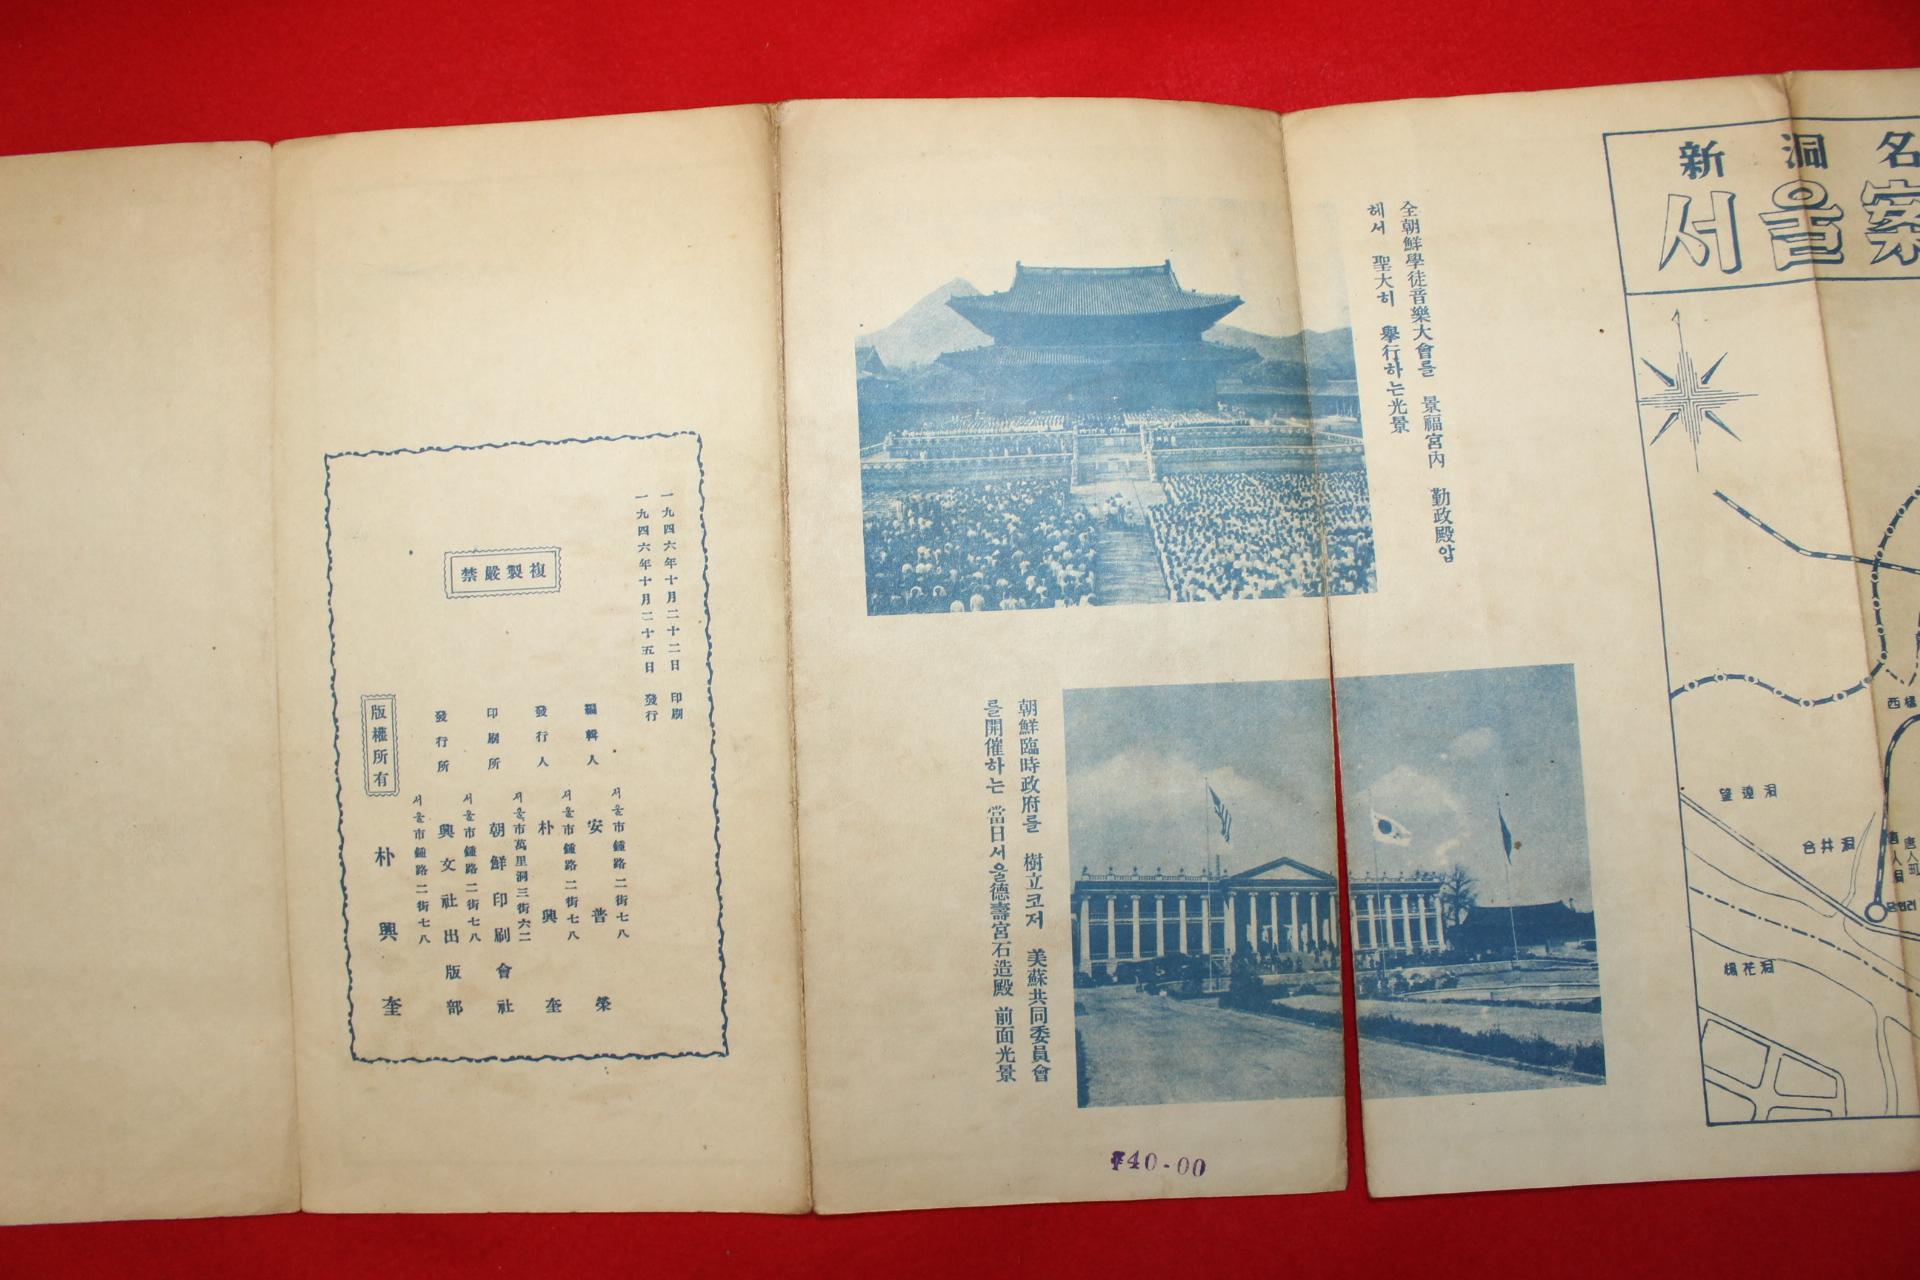 新洞名
서울案
全朝鮮學徒音樂大會를 景福宮內 勤政殿압
헤서 聖大히 擧行하는光景
朝鮮臨時政府를 樹立코저 美蘇共同委員會
를開催하는 當日서울德壽宮石造殿 前面光景
₩40-00
一九四六年十月二十二日 印刷
一九四六年十月二十五日 發行
複製嚴禁
서울市鍾路二街七八
編輯人 安普榮
서울市鍾路二街七八
發行人 朴興奎
서울市萬里洞三街六二
印刷所 朝鮮印刷會社
서울市鍾路二街七八
發行所 興文社出版部
서울市鍾路二街七八
版權所有 朴興奎
望遠洞
合井洞
楊花洞
西橋
唐人洞
唐人町